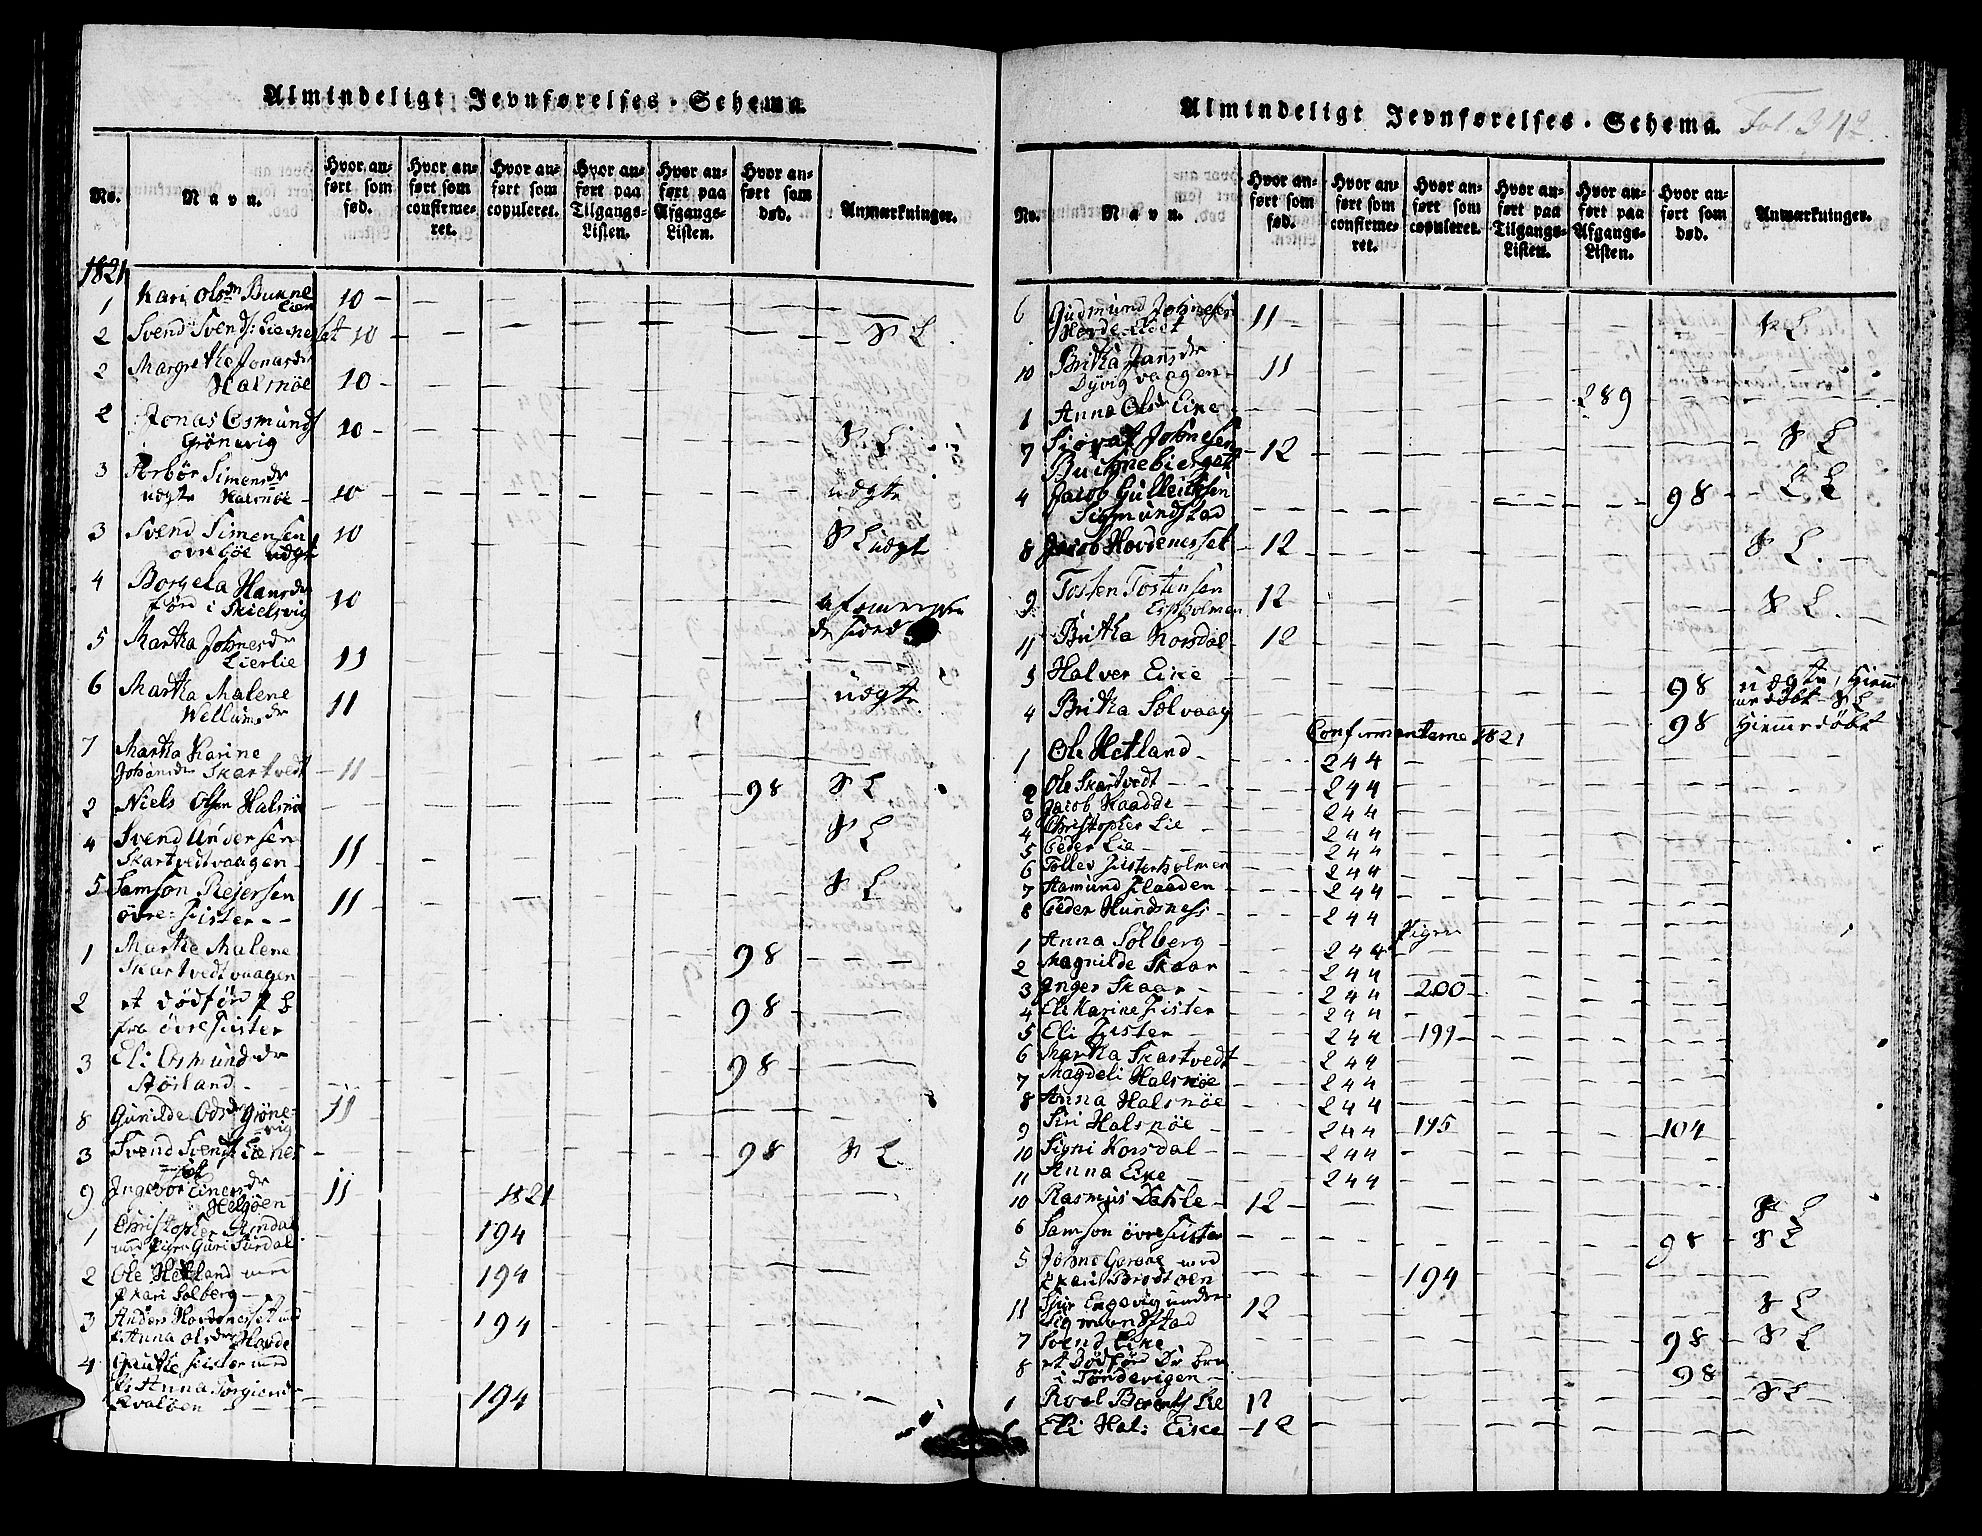 Almindeligt Jevnførelses-Schema
No. Navn. Hvor anført som fød. Hvor anført som confirmeret. Hvor anført som copuleret. Hvor anført paa Tilgangs-Listen. Hvor anført paa Afgangs-Listen. Hvor anført som død. Anmærkninger.
1821
1 Kari Olsdr Bukne 10
2 Svend Svends: Liernesset 10 S L
2 Margrethe Jonasdr
Halsnöe 10
2 Jonas Osmunds
Grönevig 10 S L
3 Torbör Simensdr
udgte Halsnöe 10 udgte
3 Svend Simensen
ovreböe udgt 10 S L udgt
4 Borgela Hansdr
förd i Skielsvig 10
5 Martha Johnesdr
Lierlie 11
6 Martha Malene
Wellumsdr 11 udgte
7 Martha Karine
Johansdr Skartvedt 11
2 Niels Olsen Halsnöe 98 S L
4 Svend Andersen
Skartvedtvaagen 11 S L
5 Samson Reiersen
övre Fister 11 S L
1 Marthe Malene
Skartvedtvaagen 98
2 et dödföd
fra övre Fister 98
3 Eli Osmundsdr
Stösland 98
8 Gunilde Odsdr Gröne-
vig 11
3 Svend Svends Liernes
set 98 S L
9 Ingebor Einersdr
Helgöen 11 1821
1 Christopher Amdal
med Pigen Guri Surdal 194
2 Ole Hetland med
P Kari Solberg 194
3 Anders Hovdenesset med
P. Anna Olsdr Hovde 194
4 Giutke Fister med
P: Anna Torgiens
Kvalöen 194
Almindeligt Jevnførelses-Schema. Fol. 342
No. Navn. Hvor anført som fød. Hvor anført som confirmeret. Hvor anført som copuleret. Hvor anført paa Tilgangs-Listen. Hvor anført paa Afgangs-Listen. Hvor anført som død. Anmærkninger.
6 Gudmund Johnesen
Hovde 11 S L
10 Britha Jansdr
Dyvigvaagen 11
1 Anna Olsdr Eike 289
7 Siovat Johnesen
Buchnebierget 12 S L
4 Jacob Gulleichsen
Sigmundstad 98 S L
8 Jacob Hovdenesset 12 S L
9 Tosten Tostensen
Espholmen 12 S L
11 Britha Norsdal 12
3 Halver Eike 98 udgte, Hiemmedöbt S L
4 Britha Solvaag 98 Hiemmedöbt
Confirmanterne 1821
1 Ole Hetland 244
2 Ole Skartvedt 244
3 Jacob Kaadde 244
4 Christopher Lie 244
5 Peder Lie 244
6 Tollev Fisterholmen 244
7 Aamund Flaaden 244
8 Peder Hundsnes 244
Piger
1 Anna Solberg 244
2 Magnilde Skaar 244
3 Inger Skaar 244 200
4 Eli Karine Fister 244
5 Eli Fister 244 199
6 Martha Skartvedt 244
7 Magdeli Halsnöe 244
8 Anna Halsnöe 244
9 Siri Halsnöe 244 195 104
10 Signi Norsdal 244
11 Anna Eike 244
10 Rasmus Dahle 12 S L
6 Samson övre Fister 98 S L
5 Johne Garane med
P Kari Brodtoen 194
11 Siur Engevig under
Sigmundstad 12 S L
7 Svend Eike 98 S L
8 et Dödföd Dr. barn
i Töndevigen 98
1 Roal Berents Lie 12 S L
Eli Hal: Eike 12